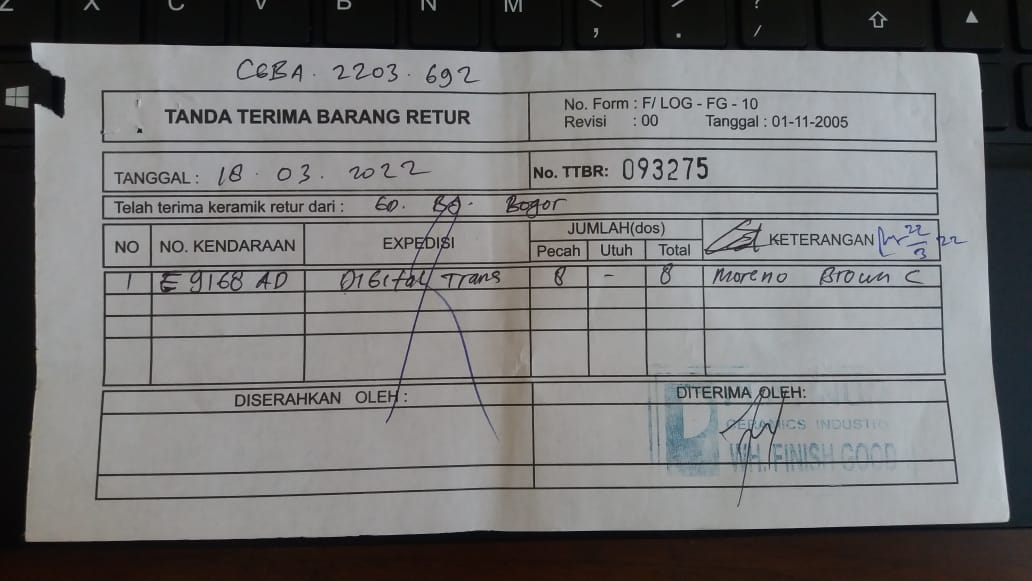 CGBA. 2203. 692
TANDA TERIMA BARANG RETUR
No. Form : F/ LOG - FG - 10
Revisi : 00 Tanggal : 01-11-2005
TANGGAL : 18 . 03. 2022
No. TTBR: 093275
Telah terima keramik retur dari : GD. BA. Bogor
NO NO. KENDARAAN EXPEDISI JUMLAH(dos) KETERANGAN 22/3 22
Pecah Utuh Total
1 E 9168 AD DIGITAL Trans 8 - 8 Moreno Brown C
DISERAHKAN OLEH : DITERIMA OLEH:
CERAMICS INDUSTRI
WH. FINISH GOOD